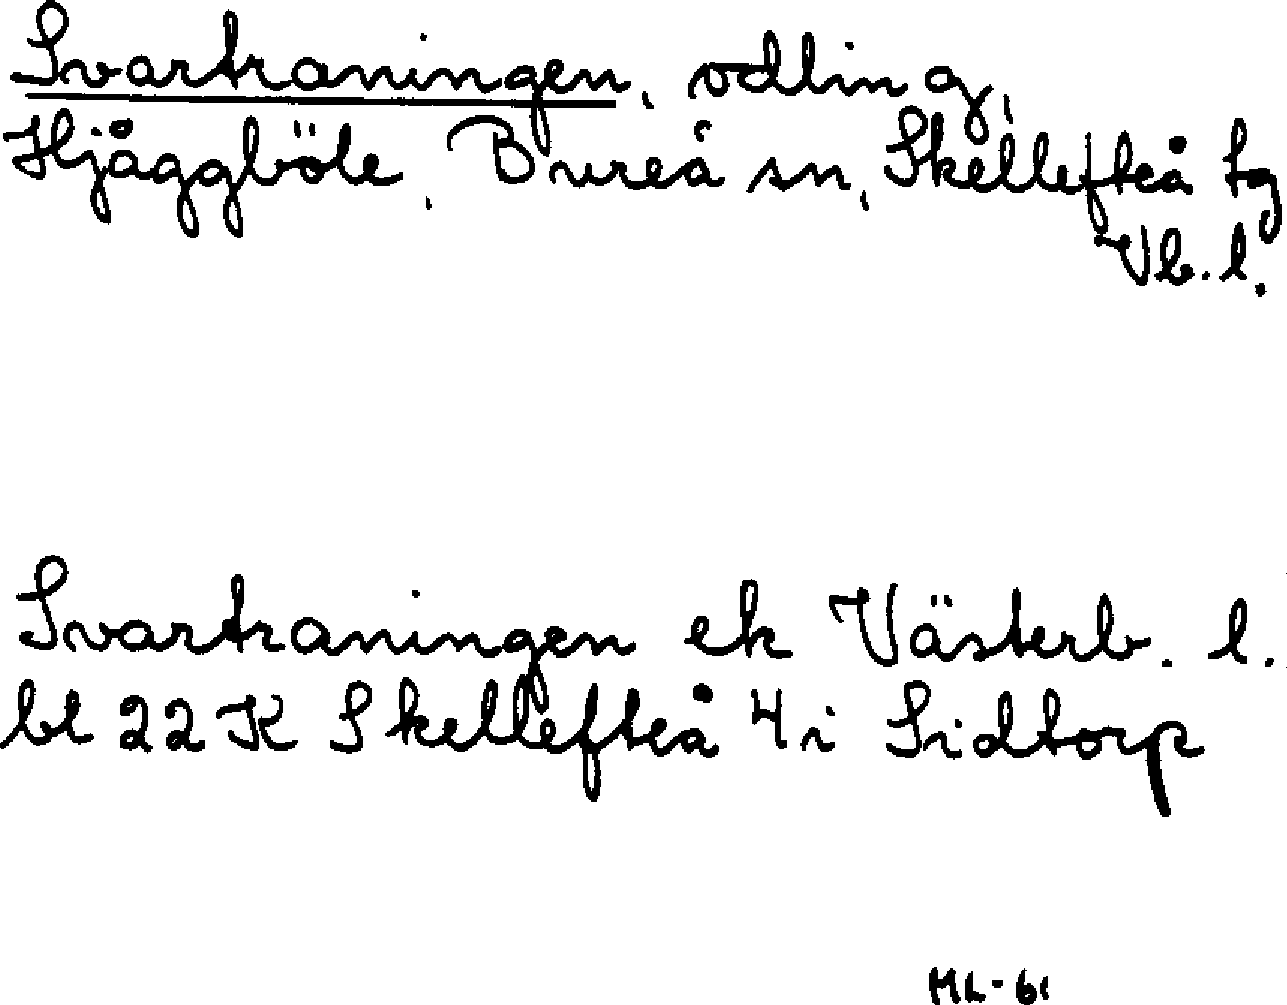 Svartraningen, odling,
Hjåggböle, Bureå sn, Skellefteå tg
Vb. l.
Svartraningen ek Västerb. l.
bl 22 K Skellefteå 4i Sidtorp
ML-61